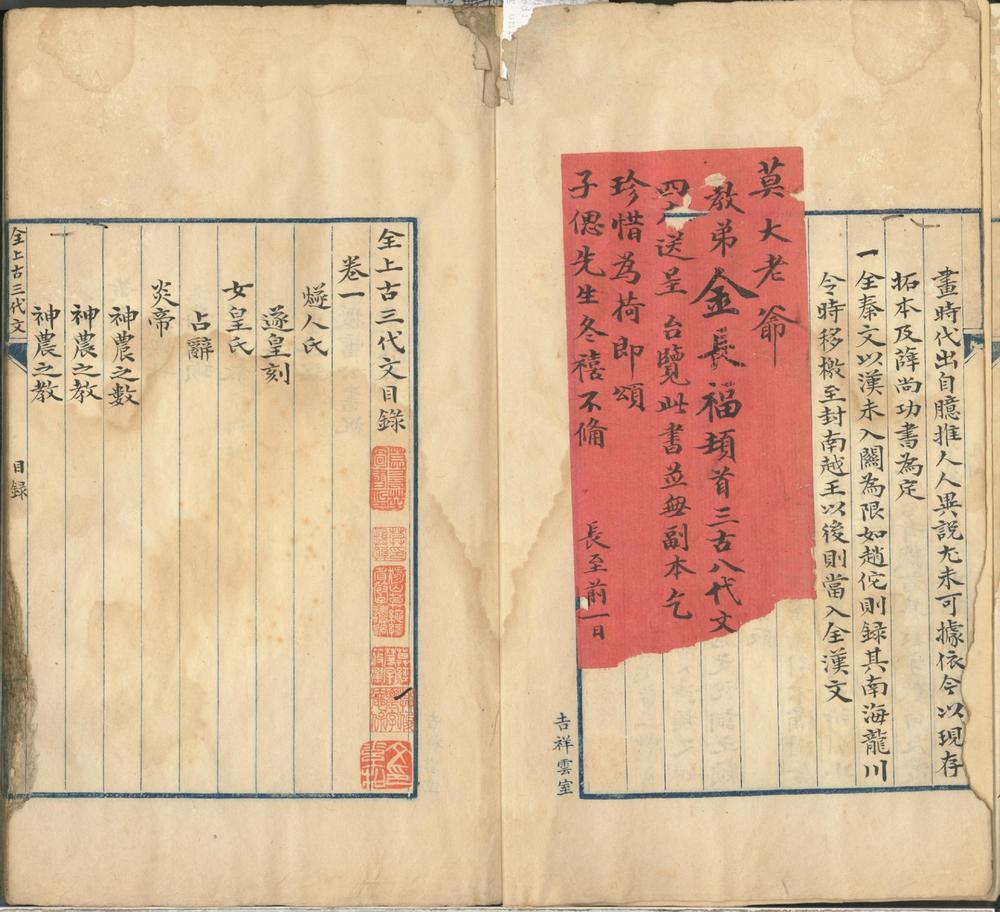 畫時代出自臆推人人異說尤未可據依今以現存
拓本及薛尚功書為定
一全秦文以漢未入關為限如趙佗則録其南海龍川
令時移檄至封南越王以後則當入全漢文
莫大老爺
教弟金長福頓首三古八代文
四 送呈 台覽此書並無副本乞
珍惜為荷即頌
子偲先生冬禧不備 長至前一日
吉祥雲室
全上古三代文目録
卷一
燧人氏
遂皇刻
女皇氏
占辭
炎帝
神農之數
神農之教
神農之教
全上古三代文 目録